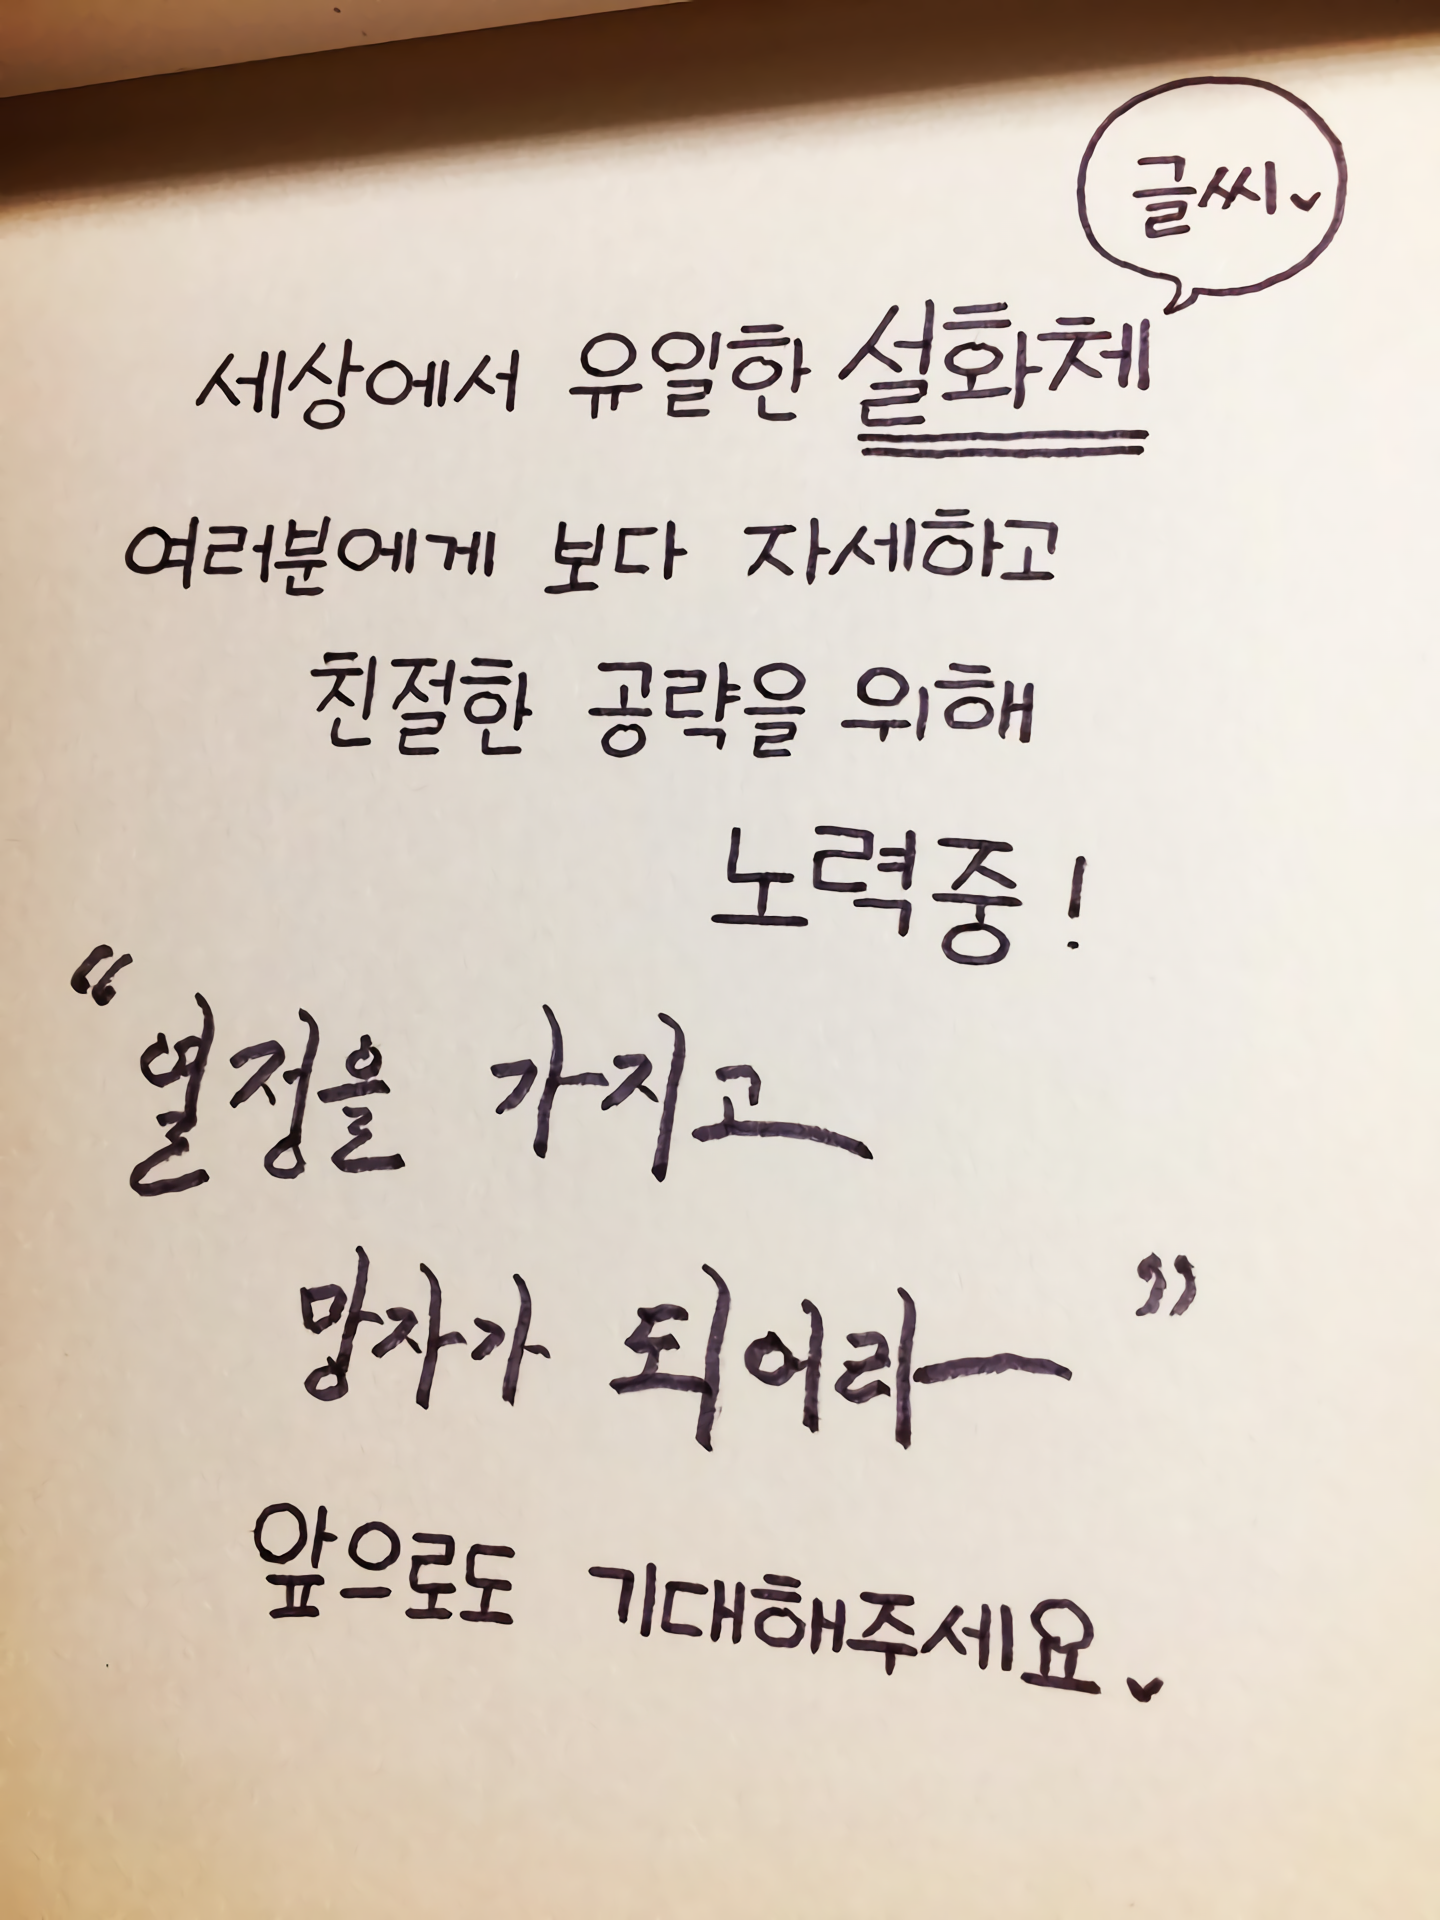 글씨
세상에서 유일한 설화체
여러분에게 보다 자세하고
친절한 공략을 위해
노력중!
“열정을 가지고
망자가 되어라”
앞으로도 기대해주세요